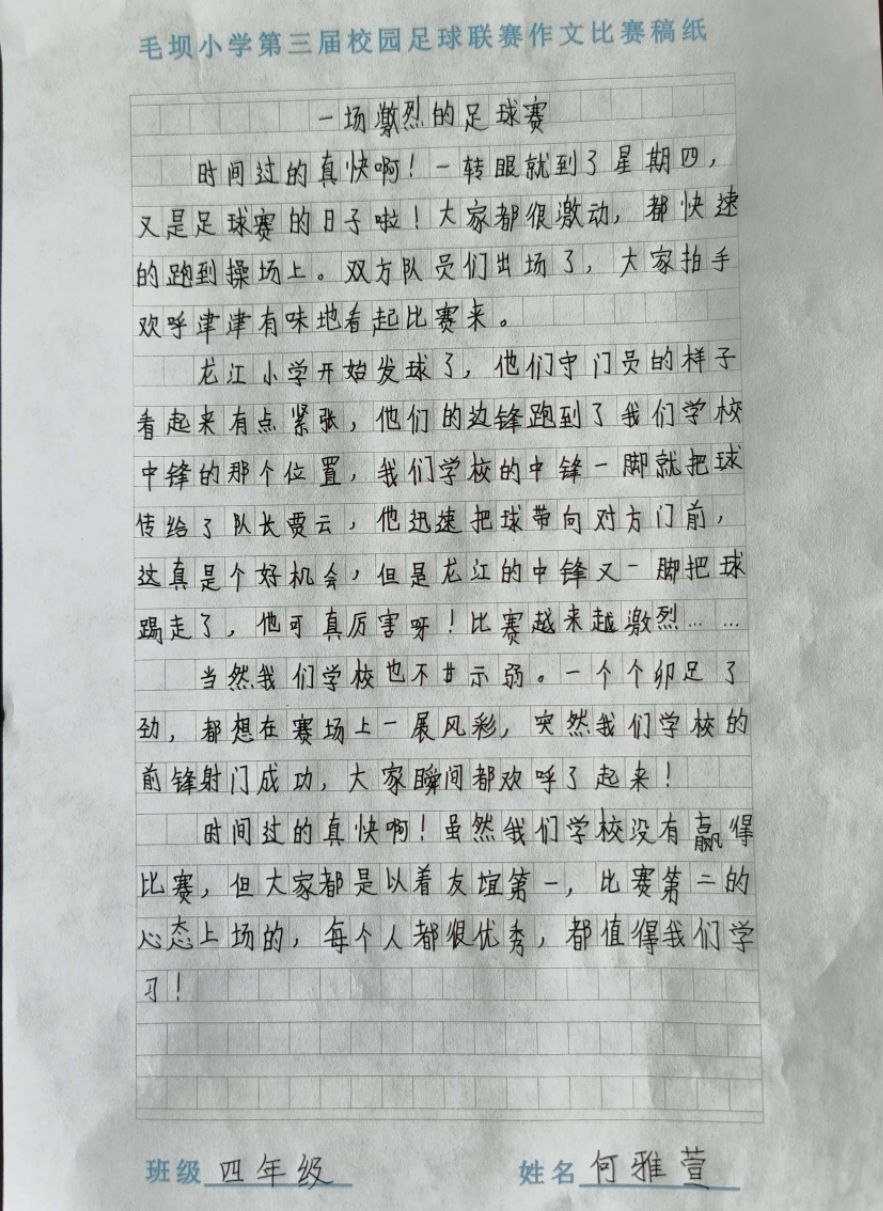 毛坝小学第三届校园足球联赛作文比赛稿纸
一场激烈的足球赛
时间过的真快啊！一转眼就到了星期四，
又是足球赛的日子啦！大家都很激动，都快速
的跑到操场上。双方队员们出场了，大家拍手
欢呼津津有味地看起比赛来。
龙江小学开始发球了，他们守门员的样子
看起来有点紧张，他们的边锋跑到了我们学校
中锋的那个位置，我们学校的中锋一脚就把球
传给了队长贾云，他迅速把球带向对方门前，
这真是个好机会，但是龙江的中锋又一脚把球
踢走了，他可真厉害呀！比赛越来越激烈……
当然我们学校也不甘示弱。一个个卯足了
劲，都想在赛场上一展风彩，突然我们学校的
前锋射门成功，大家瞬间都欢呼了起来！
时间过的真快啊！虽然我们学校没有赢得
比赛，但大家都是以着友谊第一，比赛第二的
心态上场的，每个人都很优秀，都值得我们学
习！
班级 四年级 姓名 何雅萱